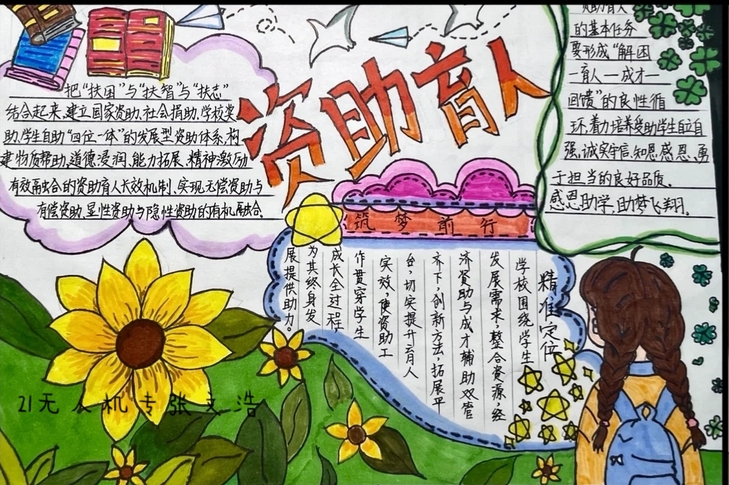 资助育人
把“扶困”与“扶智”与“扶志”
结合起来,建立国家资助、社会捐助、学校奖
助、学生自助“四位一体”的发展型资助体系,构
建物质帮助、道德浸润、能力拓展、精神激励
有效融合的资助育人长效机制、实现无偿资助与
有偿资助、显性资助与隐性资助的有机融合。
资助育人
的基本任务
要形成“解困
—育人—成才—
回馈”的良性循
环.着力培养受助学生自
强,诚实守信,知恩感恩、勇
于担当的良好品质.
感恩助学,助梦飞翔.
筑梦前行
精准定位
学校围绕学生
发展需求,整合资源,经
济资助与成才辅助双管
齐下,创新方法,拓展平
台,切实提升育人
实效,使资助工
作贯穿学生
成长全过程
为其终身发
展提供助力。
21无人机专张文浩